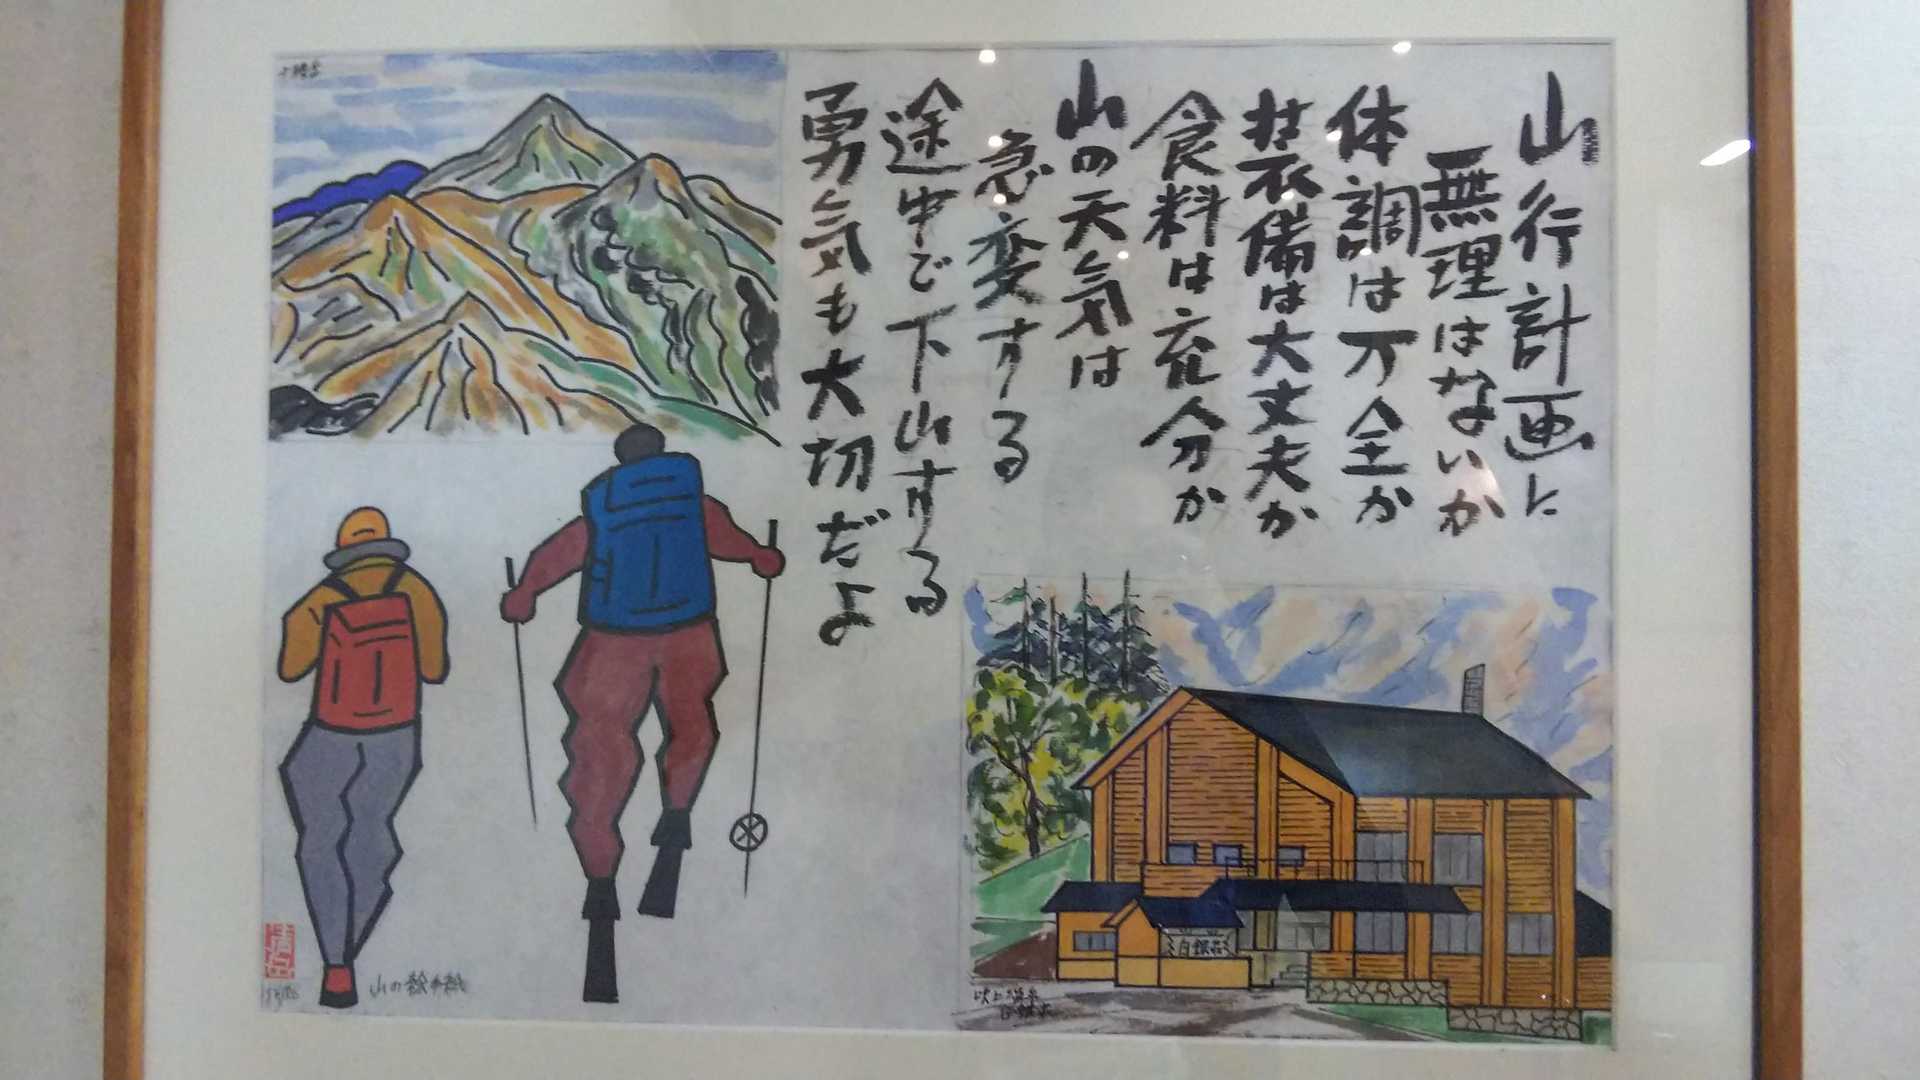 山行計画に
無理はないか
体調は万全か
装備は大丈夫か
食料は充分か
山の天気は
急変する
途中で下山する
勇気も大切だよ
十勝岳
白銀荘
吹上温泉
白銀荘
山の絵手紙